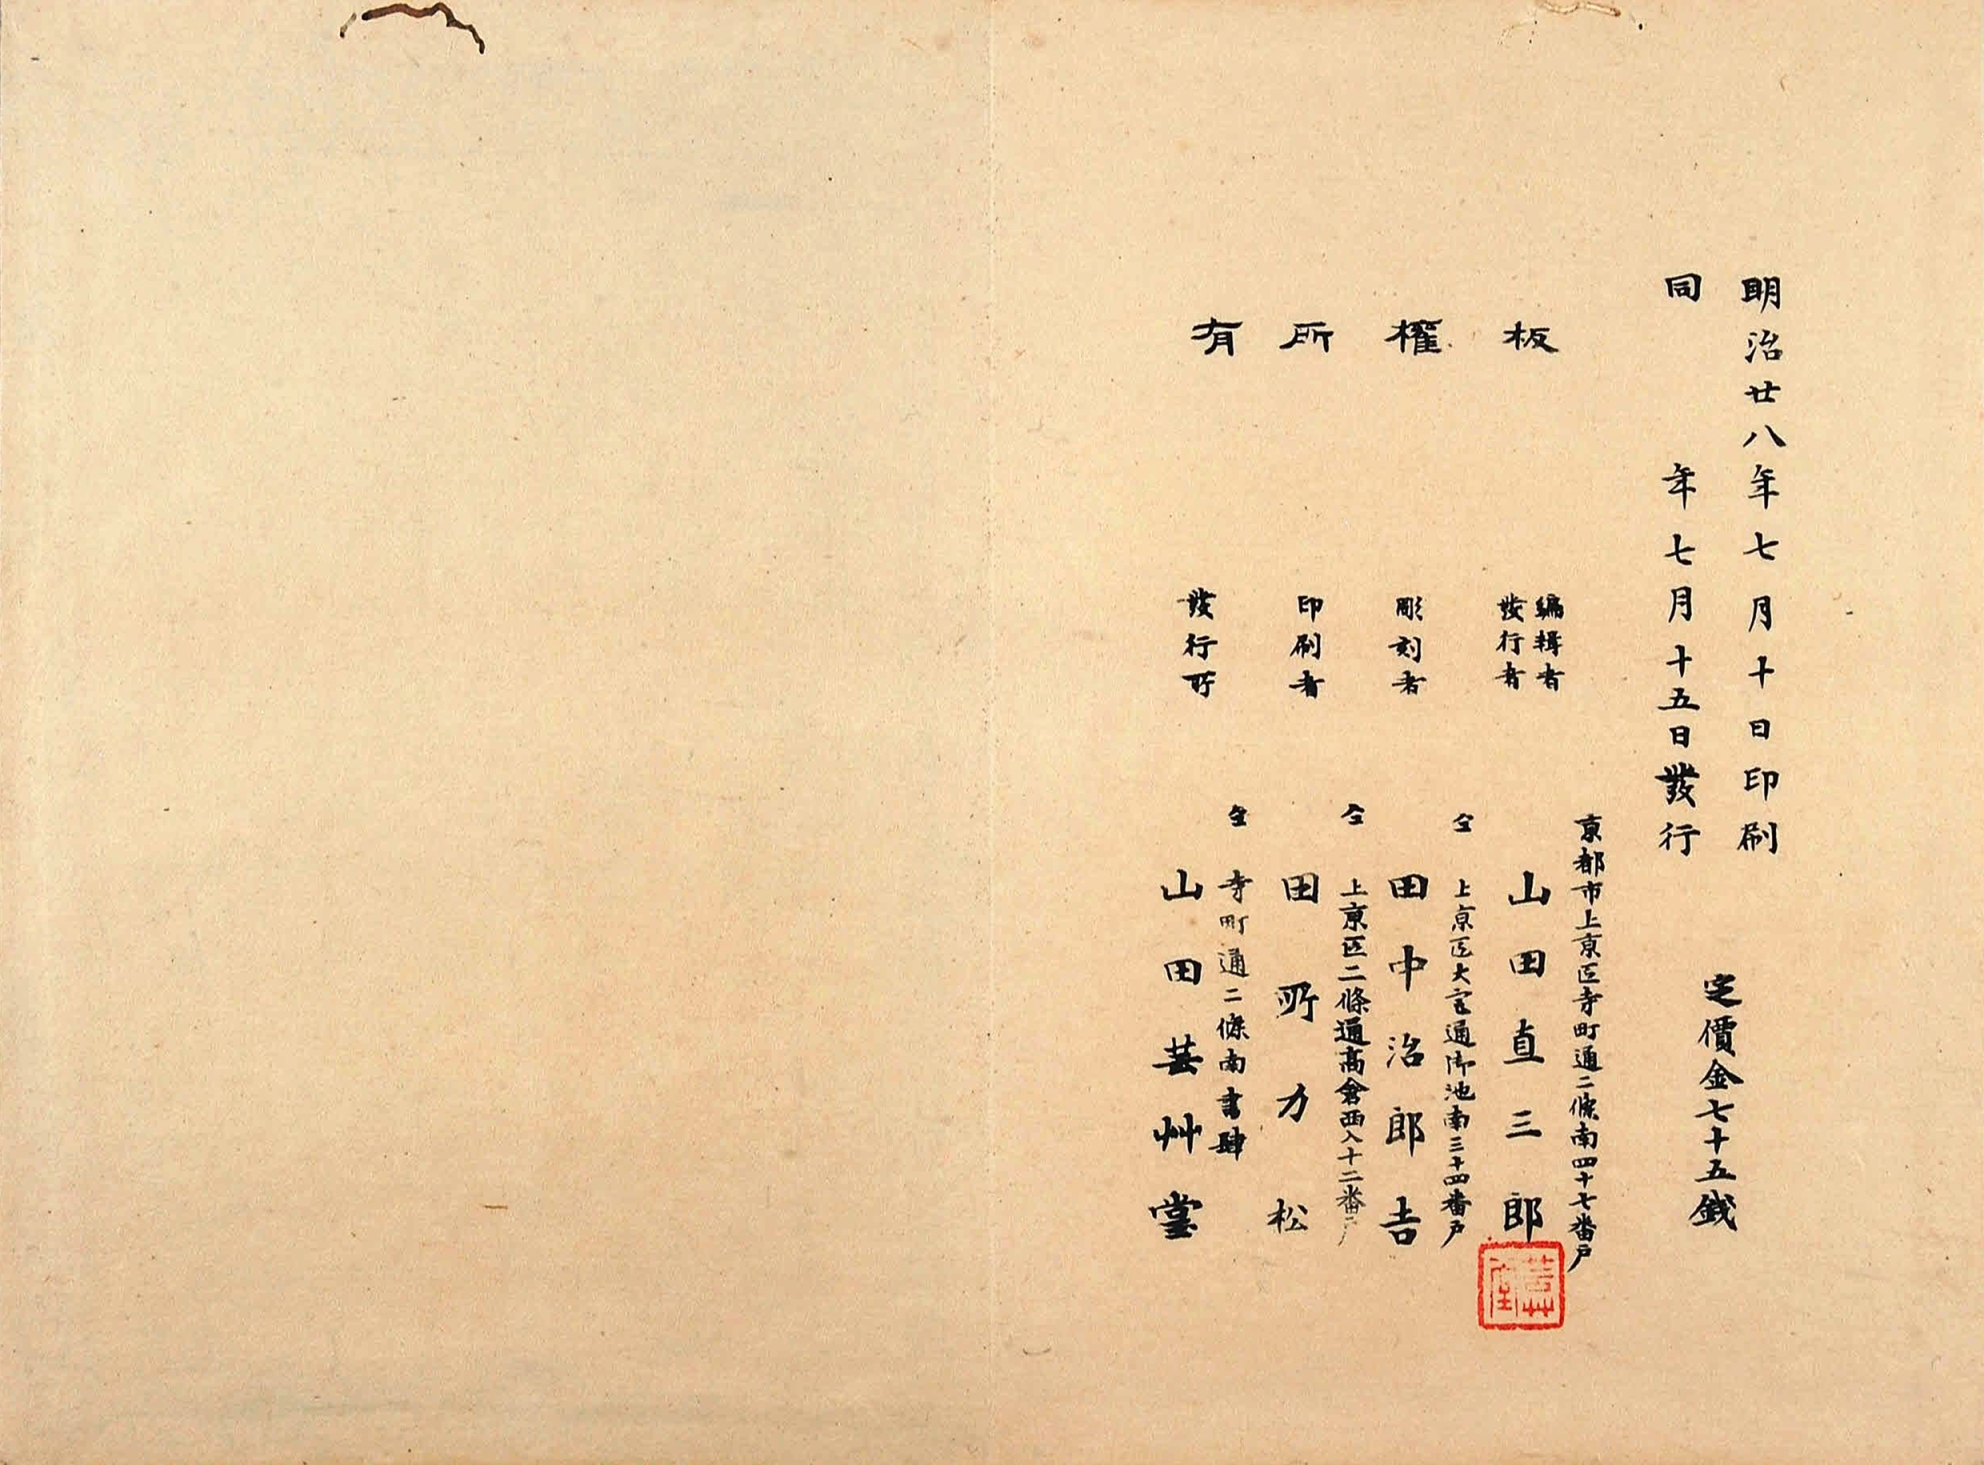 明治廿八年七月十日印刷
同年七月十五日發行
定價金七十五錢
板權所有
京都市上京区寺町通二條南四十七番戸
編輯者
發行者
山田直三郎
芸艸堂
仝上京区大宮通御池南三十四番戸
彫刻者
田中治郎吉
仝上京区二條通髙倉西入十二番戸
印刷者
田所力松
仝寺町通二條南書肆
發行所
山田芸艸堂